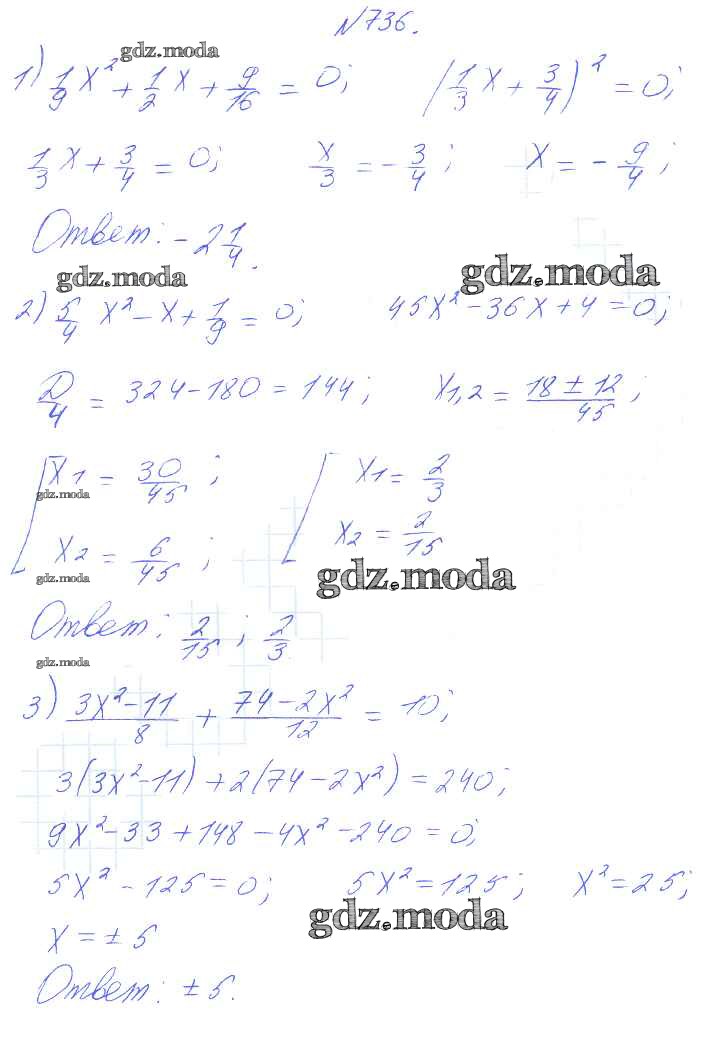 №736.
gdz.moda
1) 1/9 x² + 1/2 x + 9/16 = 0; (1/3 x + 3/4)² = 0;
1/3 x + 3/4 = 0; x/3 = -3/4; x = -9/4;
Ответ: -2 1/4.
gdz.moda gdz.moda
2) 5/4 x² - x + 1/9 = 0; 45x² - 36x + 4 = 0;
D/4 = 324 - 180 = 144; x1,2 = (18 ± 12)/45;
x1 = 30/45; x1 = 2/3
gdz.moda
x2 = 6/45; x2 = 2/15
gdz.moda gdz.moda
Ответ: 2/15; 2/3
gdz.moda
3) (3x² - 11)/8 + (74 - 2x²)/12 = 10;
3(3x² - 11) + 2(74 - 2x²) = 240;
9x² - 33 + 148 - 4x² - 240 = 0;
5x² - 125 = 0; 5x² = 125; x² = 25;
gdz.moda
x = ± 5
Ответ: ± 5.